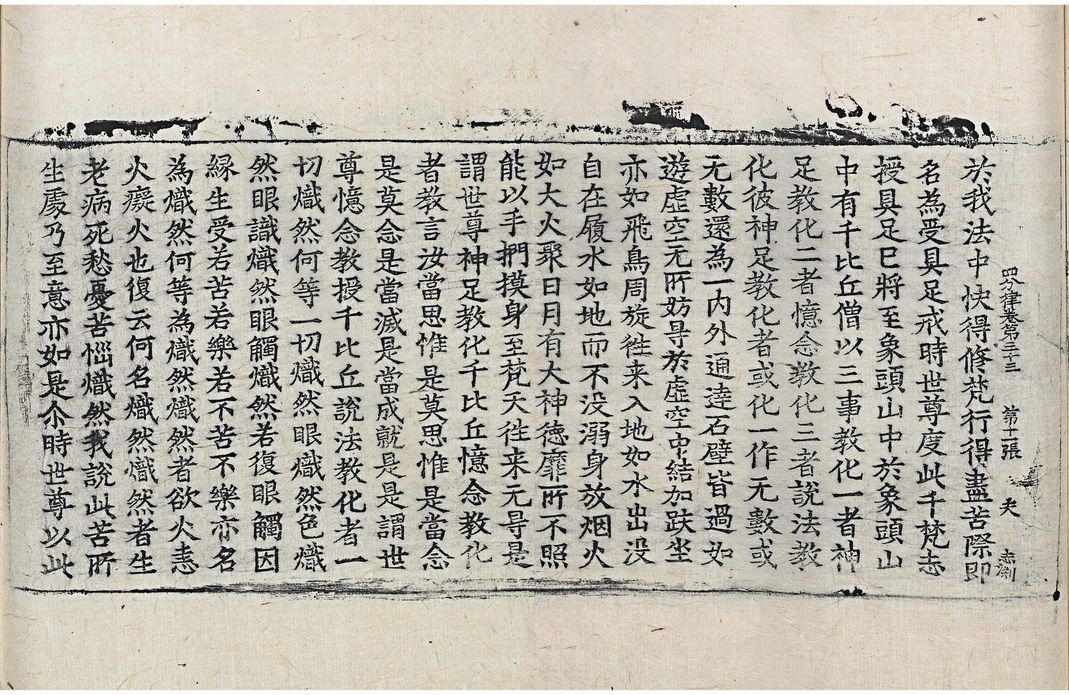 四分律卷第三十三 第十一張 夫
於我法中快得修梵行得盡苦際即
名為受具足戒時世尊度此千梵志
授具足已將至象頭山中於象頭山
中有千比丘僧以三事教化一者神
足教化二者憶念教化三者說法教
化彼神足教化者或化一作无數或
无數還為一內外通達石壁皆過如
遊虛空无所妨㝵於虛空中結加趺坐
亦如飛鳥周旋往来入地如水出没
自在履水如地而不没溺身放烟火
如大火聚日月有大神德靡所不照
能以手捫摸身至梵天往来无㝵是
謂世尊神足教化千比丘憶念教化
者教言汝當思惟是莫思惟是當念
是莫念是當滅是當成就是是謂世
尊憶念教授千比丘說法教化者一
切熾然何等一切熾然眼熾然色熾
然眼識熾然眼觸熾然若復眼觸因
緣生受若苦若樂若不苦不樂亦名
為熾然何等為熾然熾然者欲火恚
火癡火也復云何名熾然熾然者生
老病死愁憂苦惱熾然我說此苦所
生處乃至意亦如是尒時世尊以此